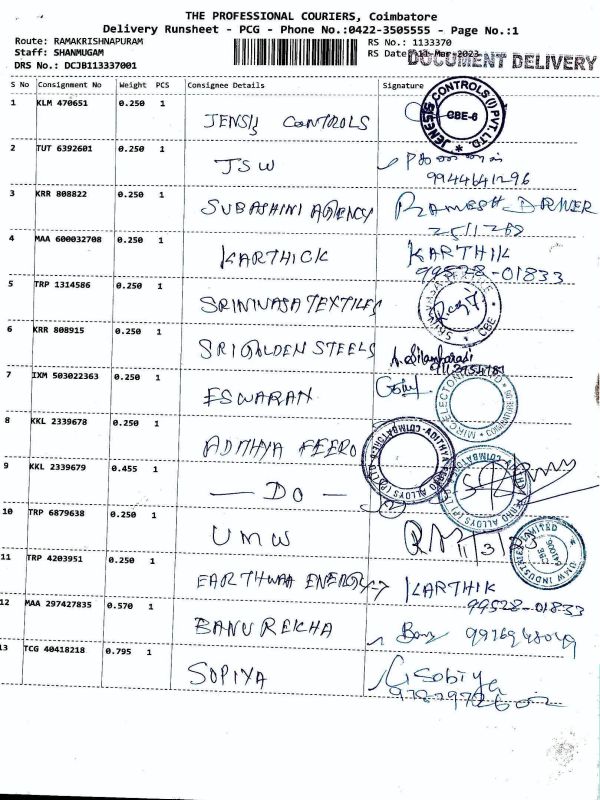 THE PROFESSIONAL COURIERS, Coimbatore
Delivery Runsheet - PCG - Phone No.:0422-3505555 - Page No.:1
Route: RAMAKRISHNAPURAM RS No.: 1133370
Staff: SHANMUGAM RS Date: 11-Mar-2023
DOCUMENT DELIVERY
DRS No.: DCJB113337001
S No Consignment No Weight PCS Consignee Details Signature
1 KLM 470651 0.250 1 CONTROLS
JENESIS CONTROLS (I) PVT. LTD
CBE-6
2 TUT 6392601 0.250 1 JSW
9944641296
3 KRR 808822 0.250 1 SUBASHINI AGENCY RAMESH DRIVER
4 MAA 600032708 0.250 1 KARTHICK KARTHIK
99528-01833
5 TRP 1314586 0.250 1 SRINIVASA TEXTILES
CBE
6 KRR 808915 0.250 1 SRI GOLDEN STEELS
7 IXM 503022363 0.250 1 ESWARAN
8 KKL 2339678 0.250 1 ADITHYA FERRO
9 KKL 2339679 0.455 1 — DO —
10 TRP 6879638 0.250 1 UMW 11/3/23
UMW INDUSTRIES LIMITED
11 TRP 4203951 0.250 1 ENERGY KARTHIK
99528-01833
12 MAA 297427835 0.570 1 BANU REKHA
13 TCG 40418218 0.795 1 SOPIYA G Sobiya